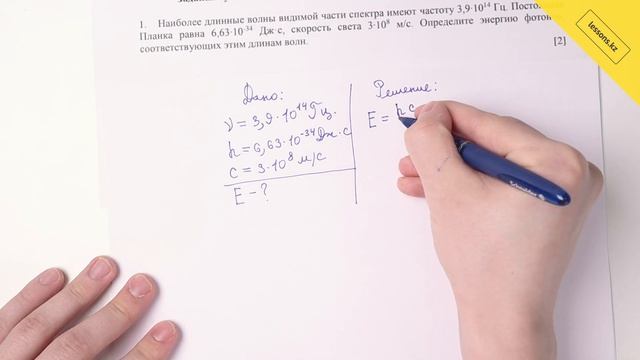 1. Наиболее длинные волны видимой части спектра имеют частоту 3,9·10¹⁴ Гц.
Планка равна 6,63·10⁻³⁴ Дж·с, скорость света 3·10⁸ м/с. Определите энергию
соответствующих этим длинам волн. [2]
lessons.kz
Дано:
ν = 3,9·10¹⁴ Гц.
h = 6,63·10⁻³⁴ Дж·с
c = 3·10⁸ м/с
E – ?
Решение:
E = h c
Schneider